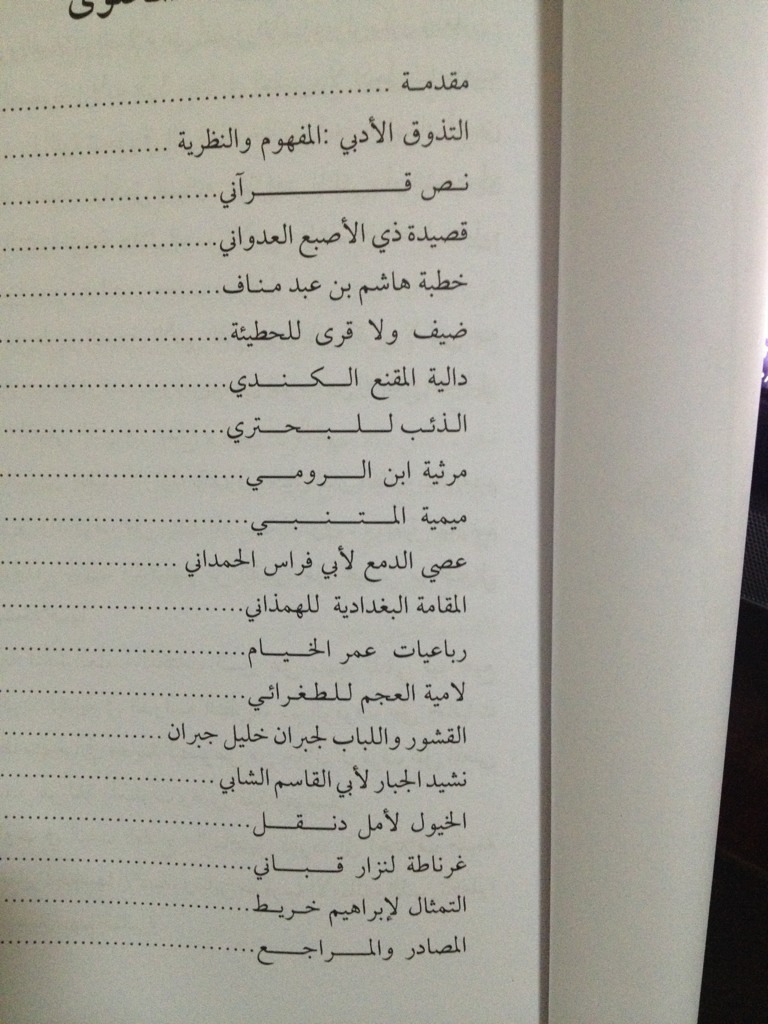 مقدمة ......................................
التذوق الأدبي :المفهوم والنظرية ...................
نص قرآني.........................
قصيدة ذي الأصبع العدواني.........................
خطبة هاشم بن عبد مناف.........................
ضيف ولا قرى للحطيئة.........................
دالية المقنع الكندي.........................
الذئب للبحتري.........................
مرثية ابن الرومي.........................
ميمية المتنبي.........................
عصي الدمع لأبي فراس الحمداني ...................
المقامة البغدادية للهمذاني.........................
رباعيات عمر الخيام.........................
لامية العجم للطغرائي.........................
القشور واللباب لجبران خليل جبران ...................
نشيد الجبار لأبي القاسم الشابي.........................
الخيول لأمل دنقل.........................
غرناطة لنزار قباني.........................
التمثال لإبراهيم خريط.........................
المصادر والمراجع.........................